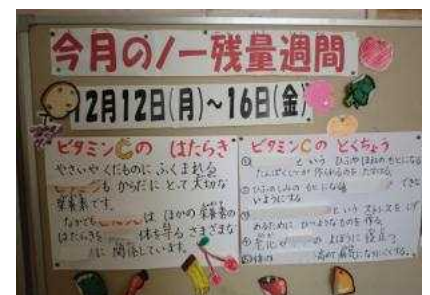 今月のノー残量週間
12月12日(月)～16日(金)
ビタミンCの はたらき
やさいやくだものに ふくまれる
も からだに とって 大切な
栄養素です。
なかでも は、ほかの 栄養素の
はたらきを 体を守る さまざまな
に 関係しています。
ビタミンCの とくちょう
① という ひふやほねのもとになる
たんぱくしつが 作られるのを たすける。
②ひふのしみの もとになる できな
いようにする
③ という ストレスを にげ
めるために ひつようなものを 作る
④老化 の よぼうに 役立つ
高めて 病気になりにくくする。